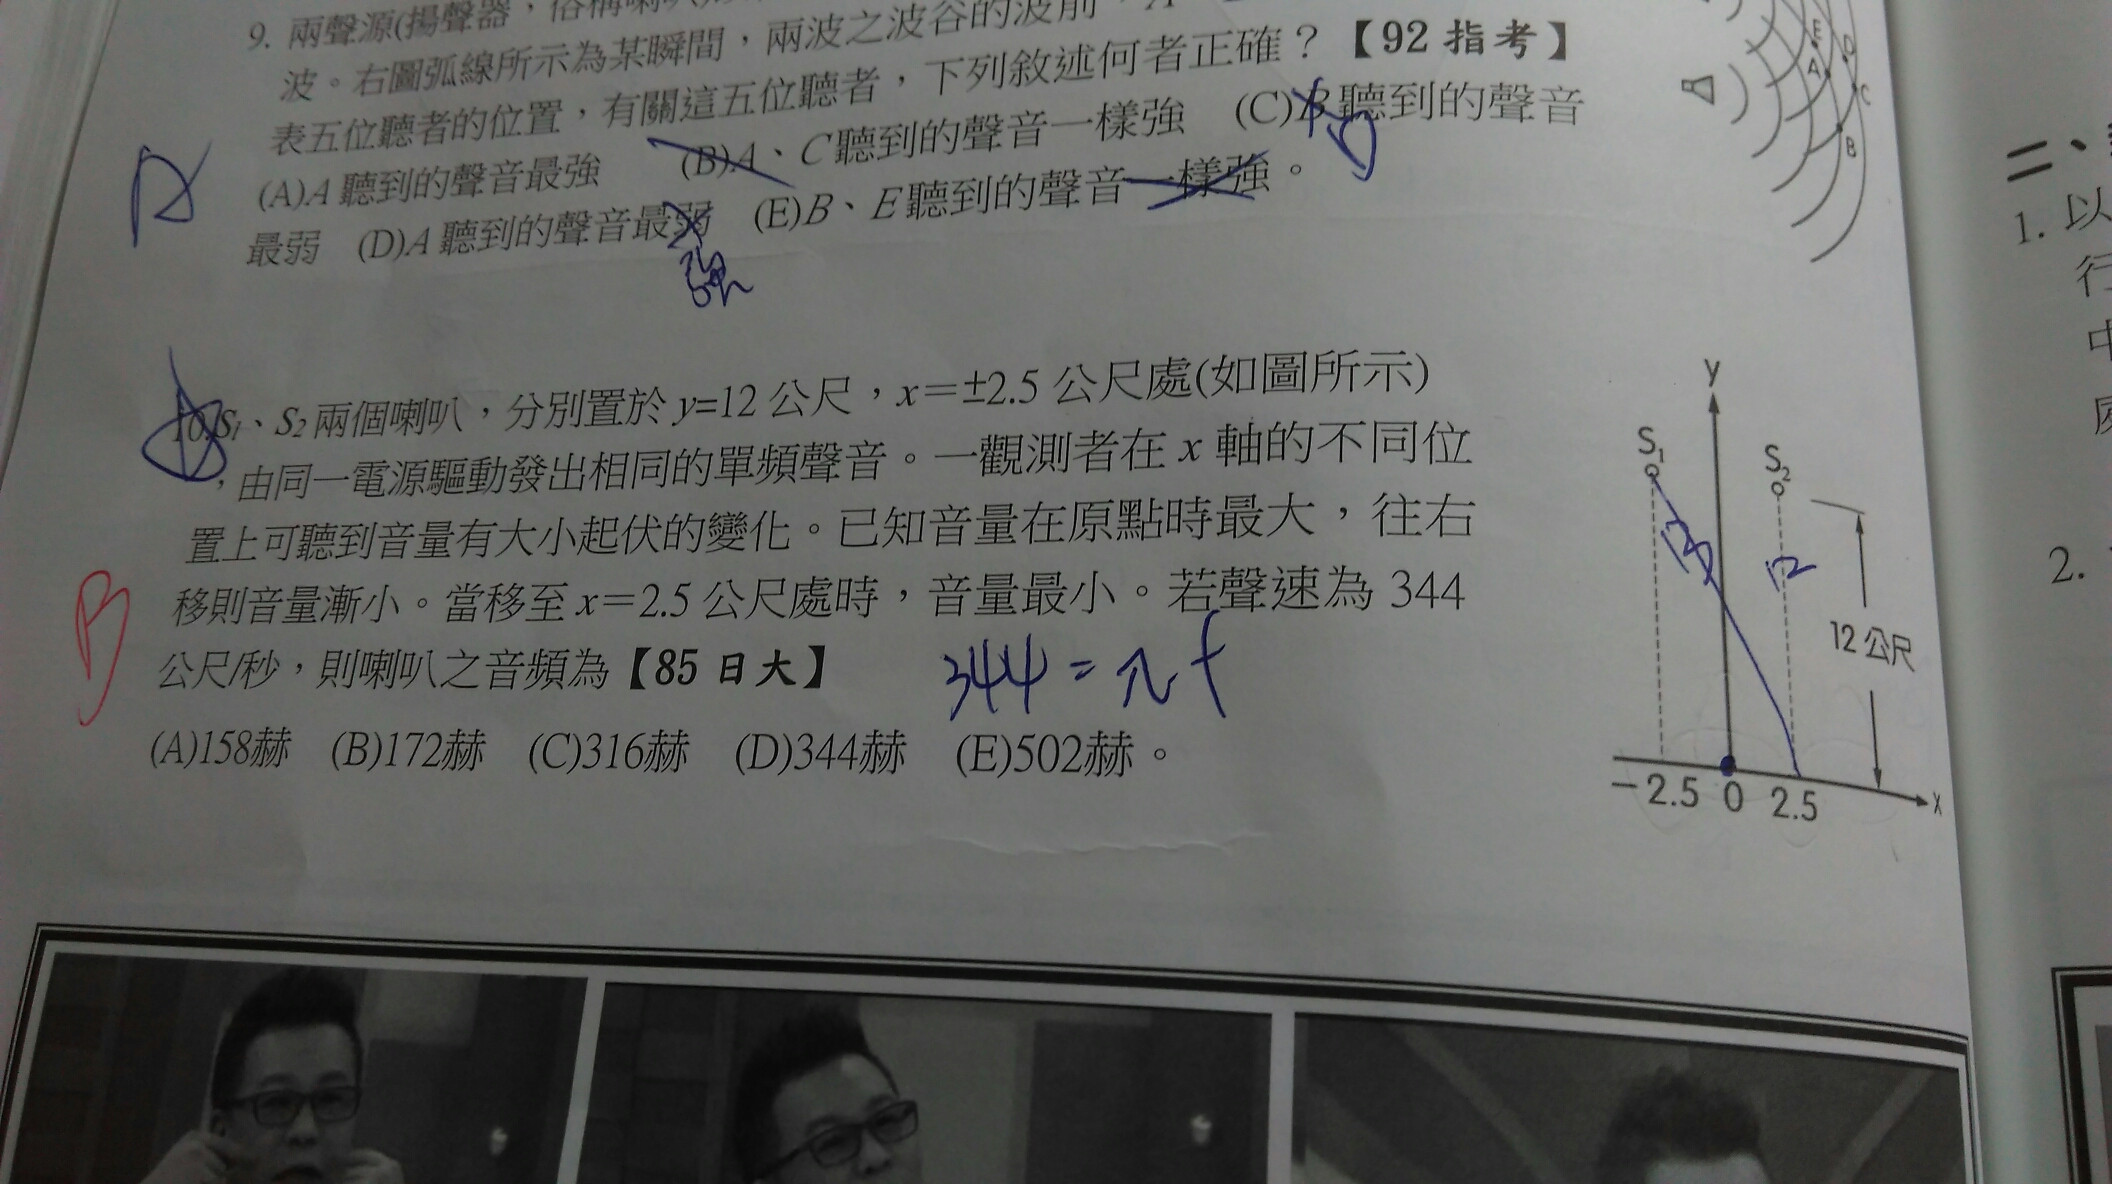 9. 兩聲源(揚聲器,俗稱喇叭
波。右圖弧線所示為某瞬間,兩波之波谷的波前,A
表五位聽者的位置,有關這五位聽者,下列敘述何者正確?【92 指考】
(A)A 聽到的聲音最強 (B)A、C 聽到的聲音一樣強 (C)B 聽到的聲音
最弱 (D)A 聽到的聲音最弱 (E)B、E 聽到的聲音一樣強。
D
A
強
E
D
A
C
B
10.S₁、S₂ 兩個喇叭,分別置於 y=12 公尺,x=±2.5 公尺處(如圖所示)
,由同一電源驅動發出相同的單頻聲音。一觀測者在 x 軸的不同位
置上可聽到音量有大小起伏的變化。已知音量在原點時最大,往右
移則音量漸小。當移至 x=2.5 公尺處時,音量最小。若聲速為 344
公尺/秒,則喇叭之音頻為【85 日大】
344=λf
(A)158赫 (B)172赫 (C)316赫 (D)344赫 (E)502赫。
B
y
S₁
S₂
13
12
12 公尺
-2.5 0 2.5
x
二、
1. 以
行
中
2.